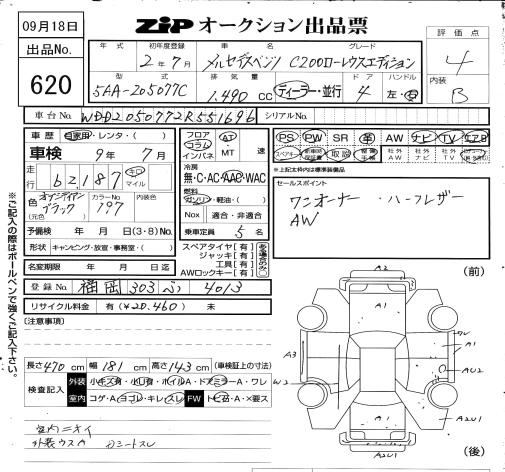 09月18日
出品No.
620
ZIP オークション出品票
年式 初年度登録 車名 グレード
2年7月 メルセデスベンツ C200ローレウスエディション
型式 排気量 ドア ハンドル
5AA-205077C 1,490cc ディーラー・並行 4 左・右
評価点
4
内装
B
車台No. WDD2050772R551696 シリアルNo.
車歴 自家用・レンタ・( )
車検 9年7月
走行 62,187 キロ マイル
色 オブシディアンブラック カラーNo. 197 内装色
(元色)
予備検 年 月 日(3・8)No.
形状 キャンピング・放宣・事務室・( )
名変期限 年 月 日迄
フロア コラム インパネ AT・MT 速
冷房
無・C・AC・AAC・WAC
燃料
ガソリン・軽油・( )
Nox 適合・非適合
乗車定員 5 名
スペアタイヤ【有】
ジャッキ【有】
工具【有】
AWロックキー【有】
PS PW SR 革 AW ナビ TV エアB
スペアキー 取説 社外AW 社外ナビ 社外TV
※上記太枠内は標準装備品
セールスポイント
ワンオーナー ・ハーフレザー
AW
登録No. 福岡 303 4013
リサイクル料金 有(¥20,460) 未
(注意事項)
長さ470cm 幅181cm 高さ143cm (車検証上の寸法)
検査記入 外装 小キズ有・小凹有・ホイルA・ドアミラーA・ワレ
室内 コゲ・A・ヨゴレ・キレ・スレ FW トビA・×要ス
室内ニオイ
外装ウスA
※ご記入の際はボールペンで強くご記入下さい。
(前)
A2
A1
A3
W2
A1
AU2
A1
A2U1
A2U1
(後)